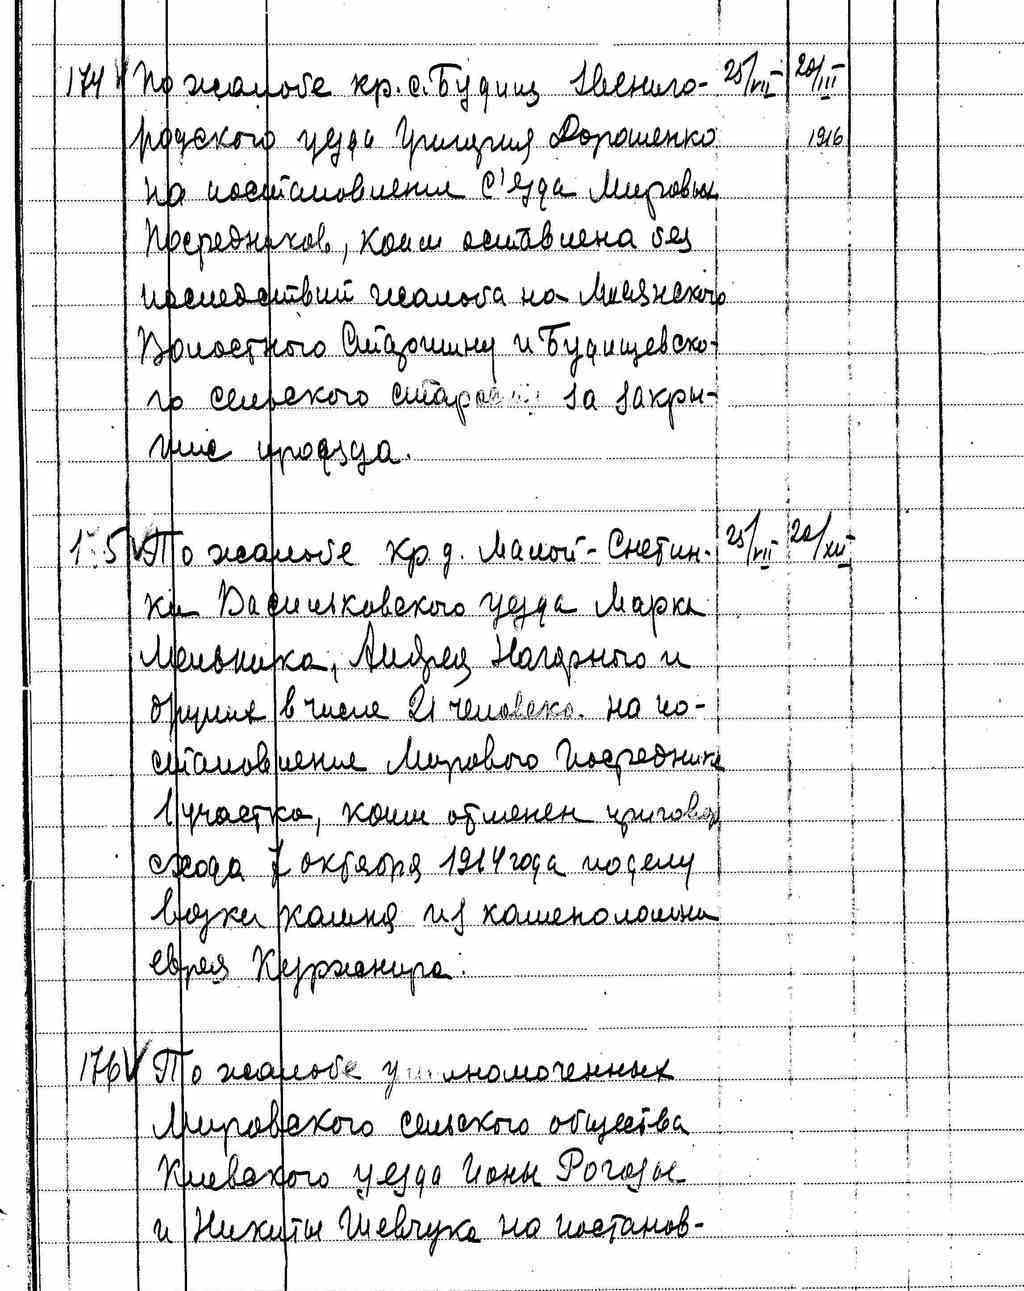 174 По жалобе кр. с. Будищ Звениго- 25/VII 20/III
родского уезда Григория Дорошенко 1916
на постановление С'езда Мировых
Посредников, коим оставлена без
последствий жалоба на
Волостного Старшину и Будищевско-
го сельского за закры-
тие проезда.
175 По жалобе кр. д. Малой-Снетин- 25/VII 20/XII
ки Васильковского уезда Марка
Мельника, Андрея Нагорного и
других в числе 21 человека на по-
становление Мирового Посредника
1 участка, коим отменен приговор
схода 7 октября 1914 года по делу
возки камня из каменоломни
еврея
176 По жалобе уполномоченных
Мировского сельского общества
Киевского уезда Ионы Рогозы
и Никиты Шевчука на постанов-